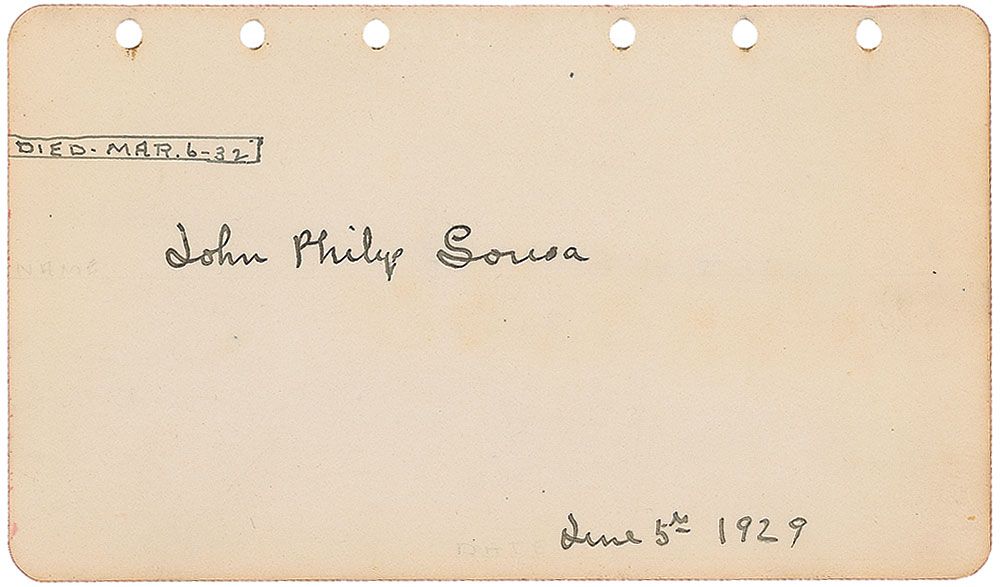 DIED-MAR.6-32
John Philip Sousa
June 5th 1929
NAME